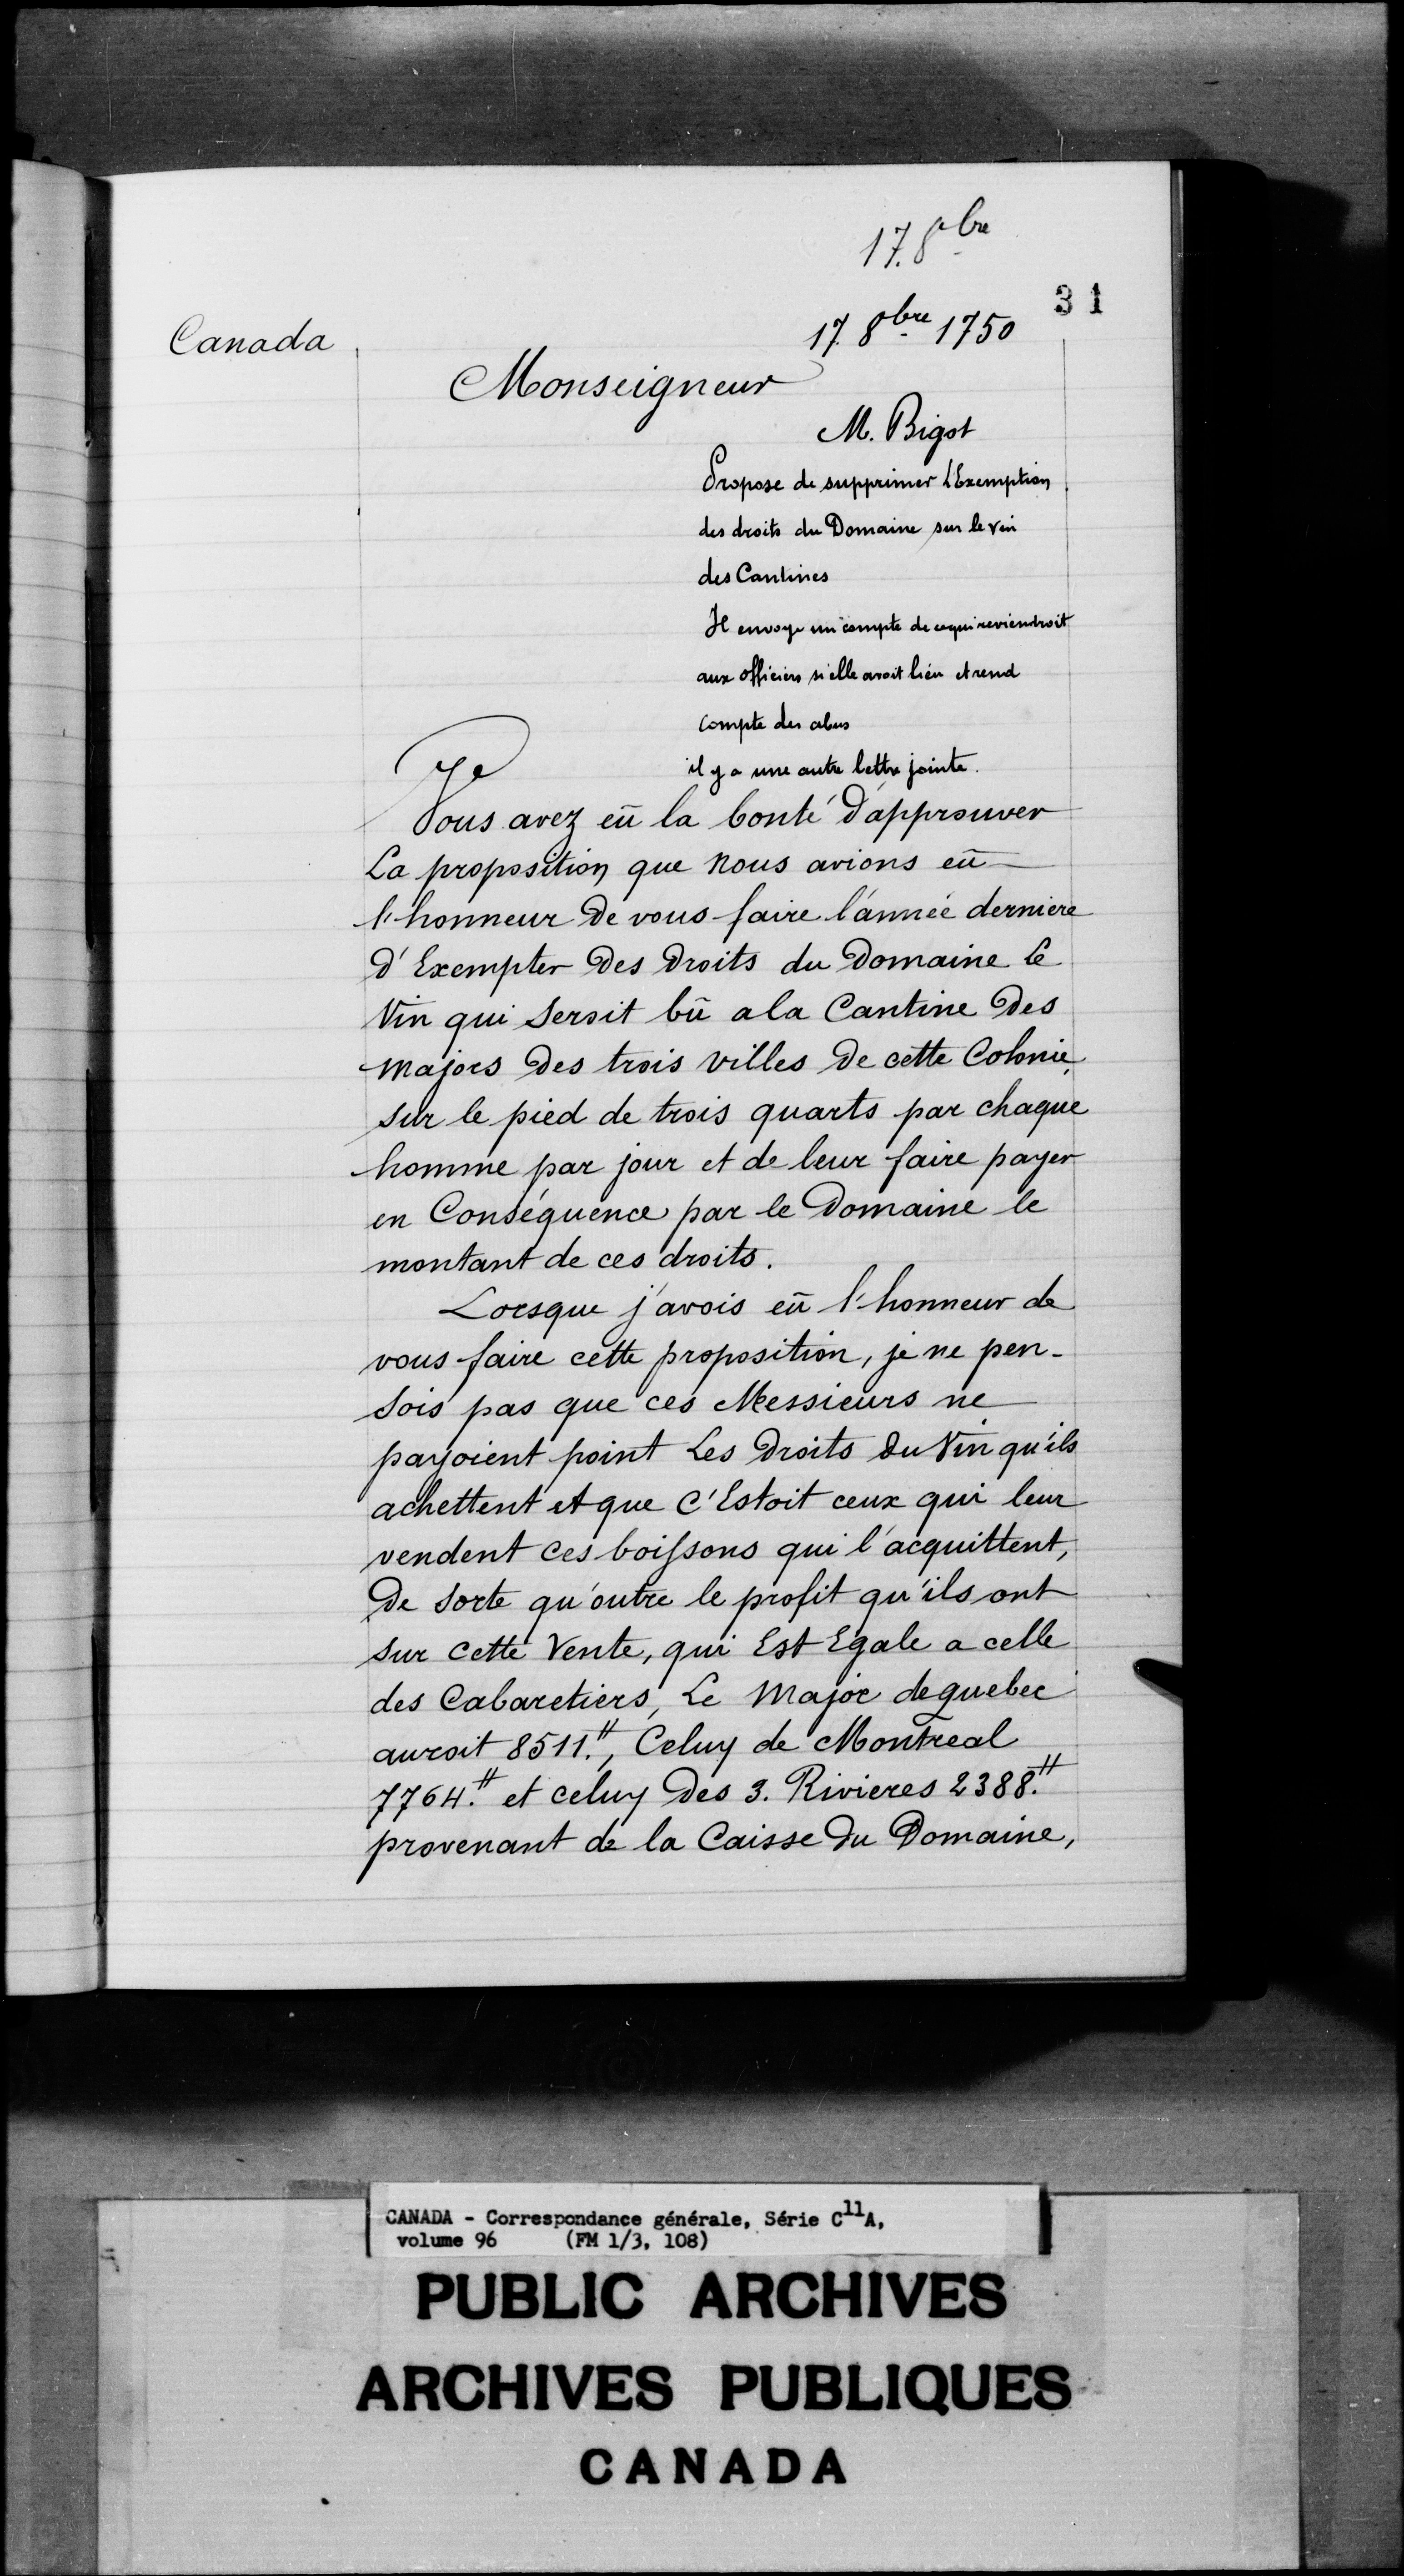 17. 8bre
31
17. 8bre 1750
Canada
Monseigneur
M. Bigot
Propose de supprimer l'Exemption
des droits du Domaine sur le vin
des Cantines
Il envoye un compte de ce qui reviendroit
aux officiers si elle avoit lieu et rend
compte des abus
il y a une autre lettre jointe.
Vous avez eü la bonté d'approuver
La proposition que nous avions eü
l'honneur De vous faire l'année derniere
d'Exempter Des Droits du Domaine le
Vin qui seroit bü a la Cantine Des
majors Des trois villes De cette Colonie,
sur le pied de trois quarts par chaque
homme par jour et de leur faire payer
en Conséquence par le Domaine le
montant de ces droits.
Lorsque j'avois eü l'honneur de
vous faire cette proposition, je ne pen-
sois pas que ces Messieurs ne
payoient point Les Droits Du Vin qu'ils
achettent et que C'Estoit ceux qui leur
vendent ces boissons qui l'acquittent,
De sorte qu'outre le profit qu'ils ont
sur cette Vente, qui Est Egale a celle
des Cabaretiers, Le Major de quebec
auroit 8511.#, Celuy de Montreal
7764.# et celuy Des 3. Rivieres 2388.#
provenant de la Caisse Du Domaine,
CANADA - Correspondance générale, Série C11A,
volume 96 (FM 1/3, 108)
PUBLIC ARCHIVES
ARCHIVES PUBLIQUES
CANADA